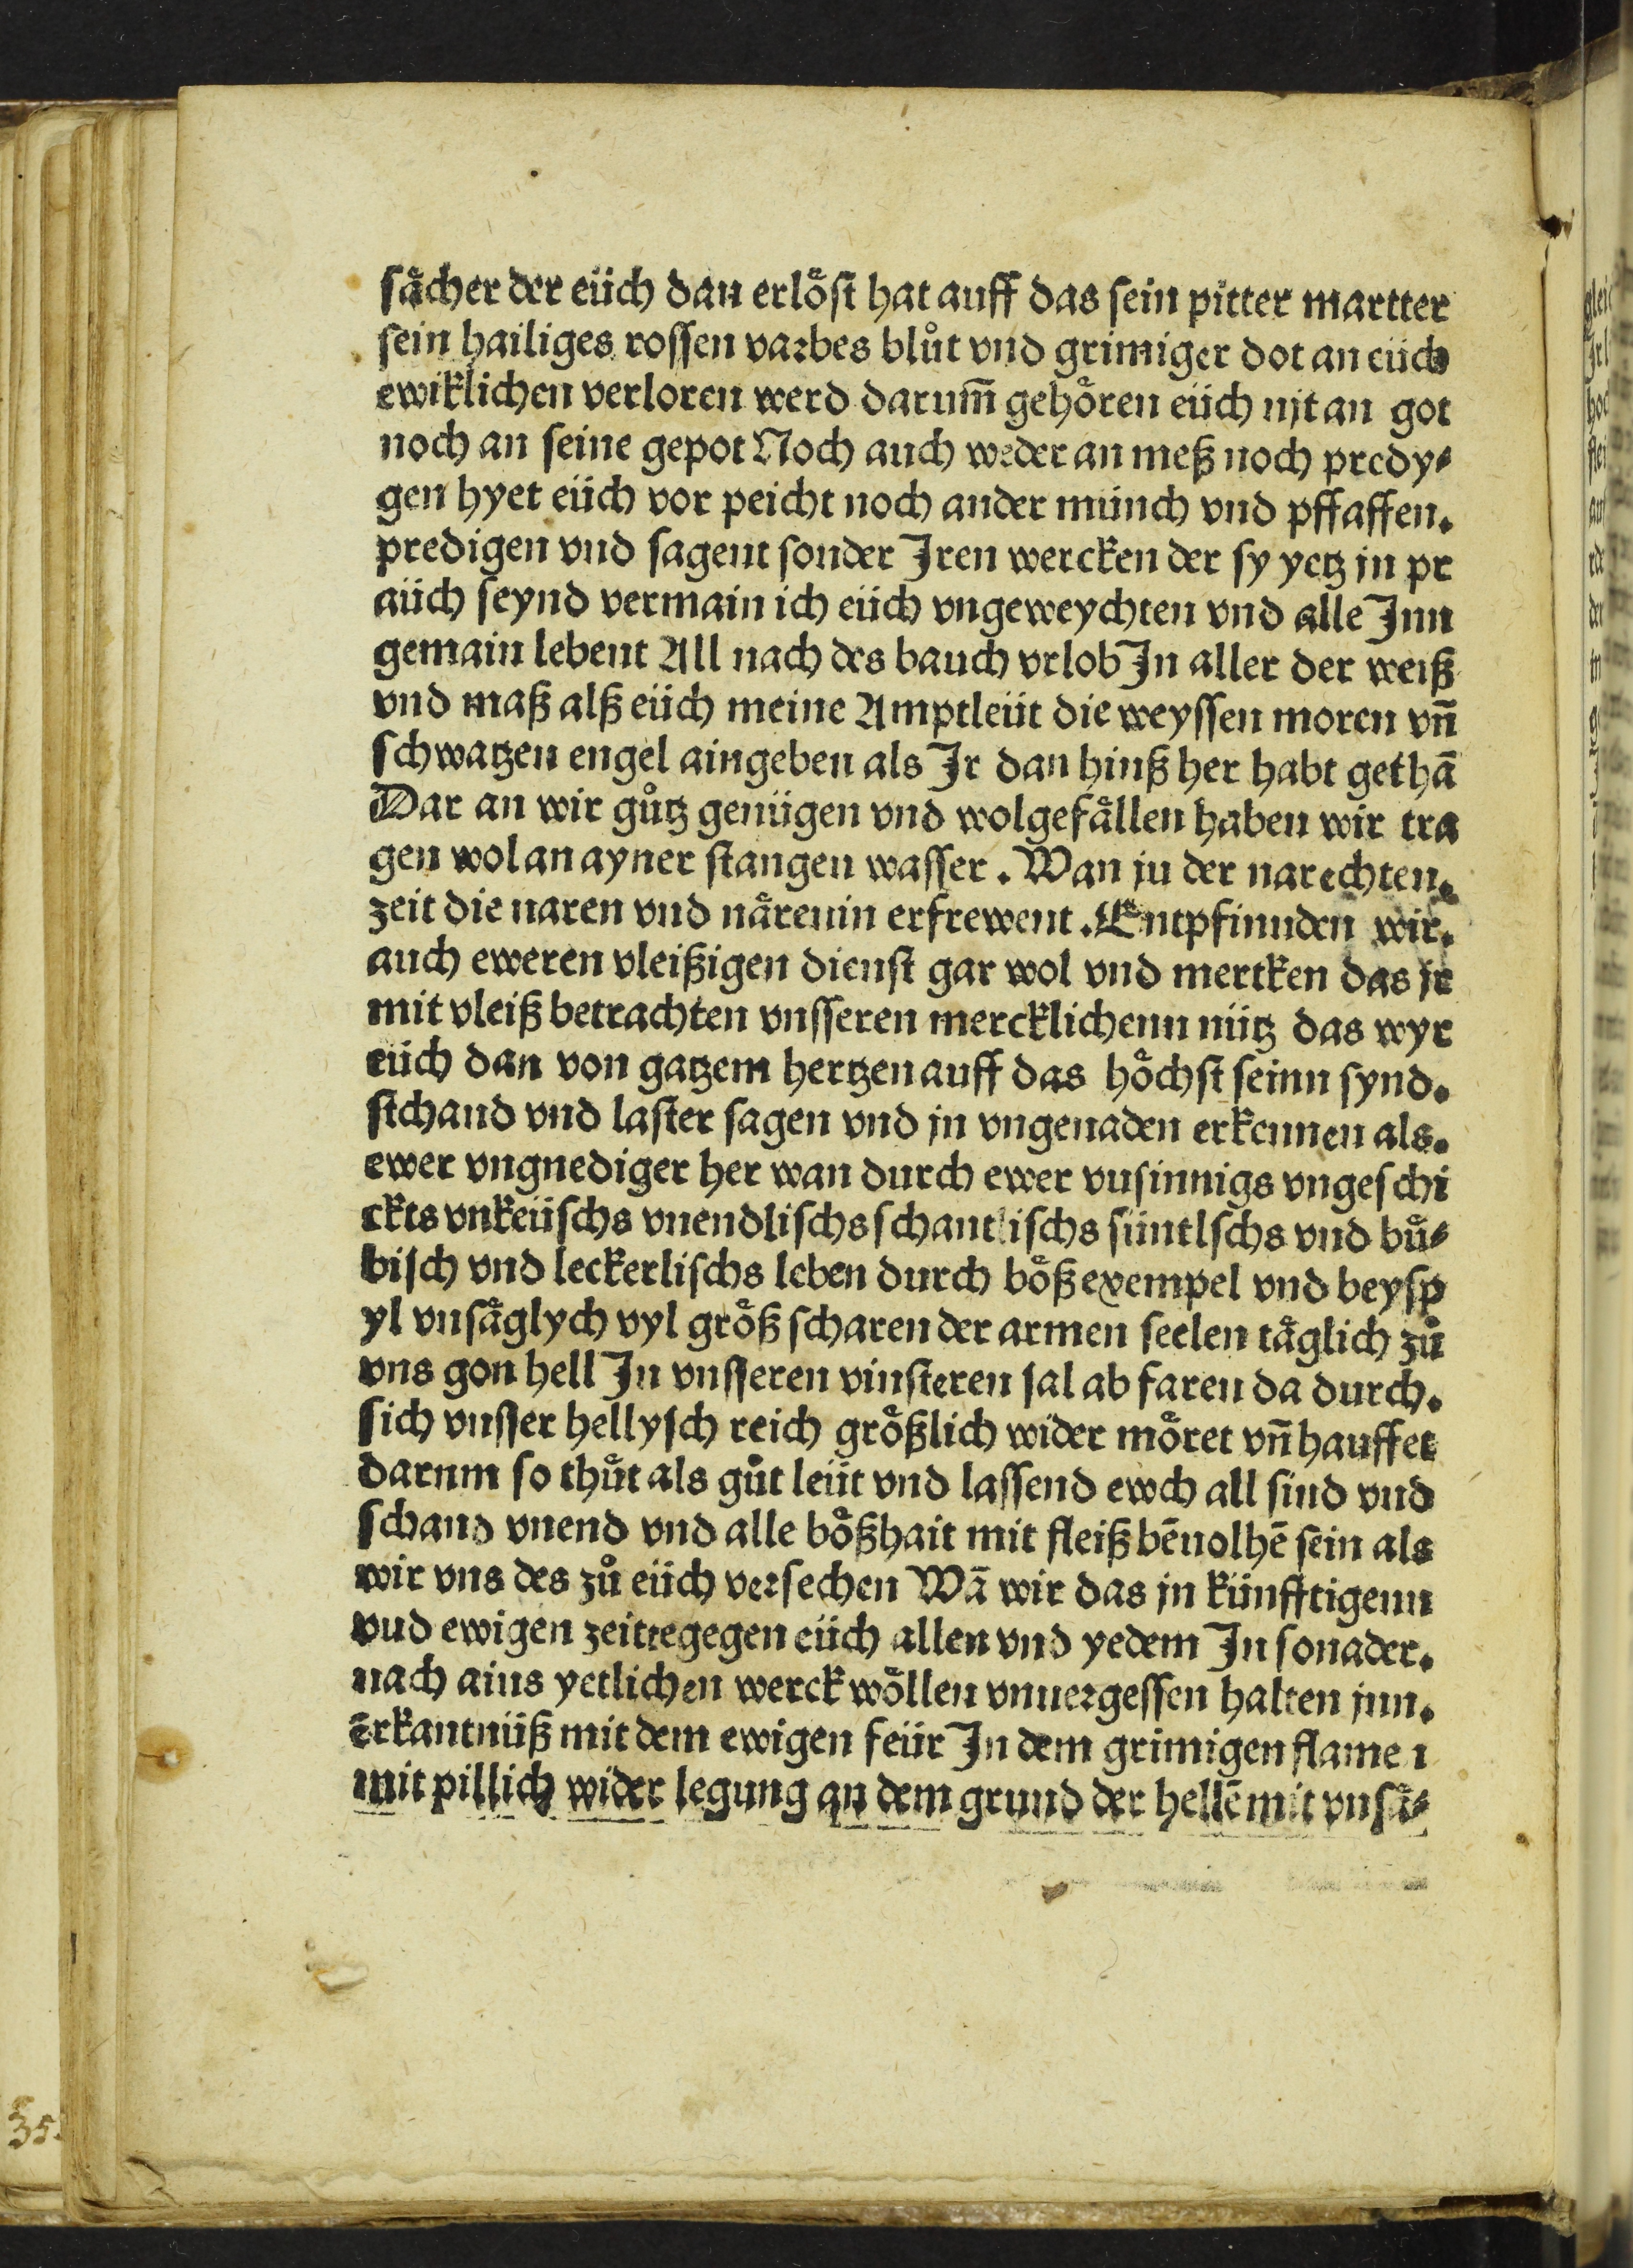 sächer der eüch dan erlöst hat auff das sein pitter martter
sein hailiges rossen varbes blůt vnd grimiger dot an eüch
ewiklichen verloren werd darum̄ gehören eüch njt an got
noch an seine gepot Noch auch weder an meß noch predy⸗
gen hyet eüch vor peicht noch ander münch vnd pffaffen.
predigen vnd sagent sonder Jren wercken der sy yetz jn pr
aüch seynd vermain ich eüch vngeweychten vnd alle Jnn
gemain lebent All nach des bauch vrlob Jn aller der weiß
vnd maß alß eüch meine Amptleüt die weyssen moren vn̄
schwatzen engel aingeben als Jr dan hinß her habt gethā
Dar an wir gůtz genügen vnd wolgefällen haben wir tra
gen wol an ayner stangen wasser. Wan ju der narechten.
zeit die naren vnd närenin erfrewent. Entpfinnden wir.
auch eweren vleißigen dienst gar wol vnd mertken das jr
mit vleiß betrachten vnsseren mercklichenn nütz das wyr
eüch dan von gatzem hertzen auff das höchst seinn synd.
stchand vnd laster sagen vnd jn vngenaden erkennen als.
ewer vngnediger her wan durch ewer vusinnigs vngeschi
ckts vnkeüschs vnendlischs schantlischs süntlschs vnd bů⸗
bisch vnd leckerlischs leben durch böß exempel vnd beysp
yl vnsäglych vyl größ scharen der armen seelen täglich zů
vns gon hell Jn vnsseren vinsteren sal ab faren da durch.
sich vnsser hellysch reich größlich wider möret vn̄ hauffet
darnm so thůt als gůt leüt vnd lassend ewch all sind vnd
schand vnend vnd alle bößhait mit fleiß bēuolhē sein als
wir vns des zů eüch versechen Wā wir das jn künfftigenn
vud ewigen zeittegegen eüch allen vnd yedem Jn sonader.
nach ains yetlichen werck wöllen vnuergessen halten jnn.
ērkantnüß mit dem ewigen feür Jn dem grimigen flame ı
mit pillich wider legung an dem grund der hellē mit vnsä⸗